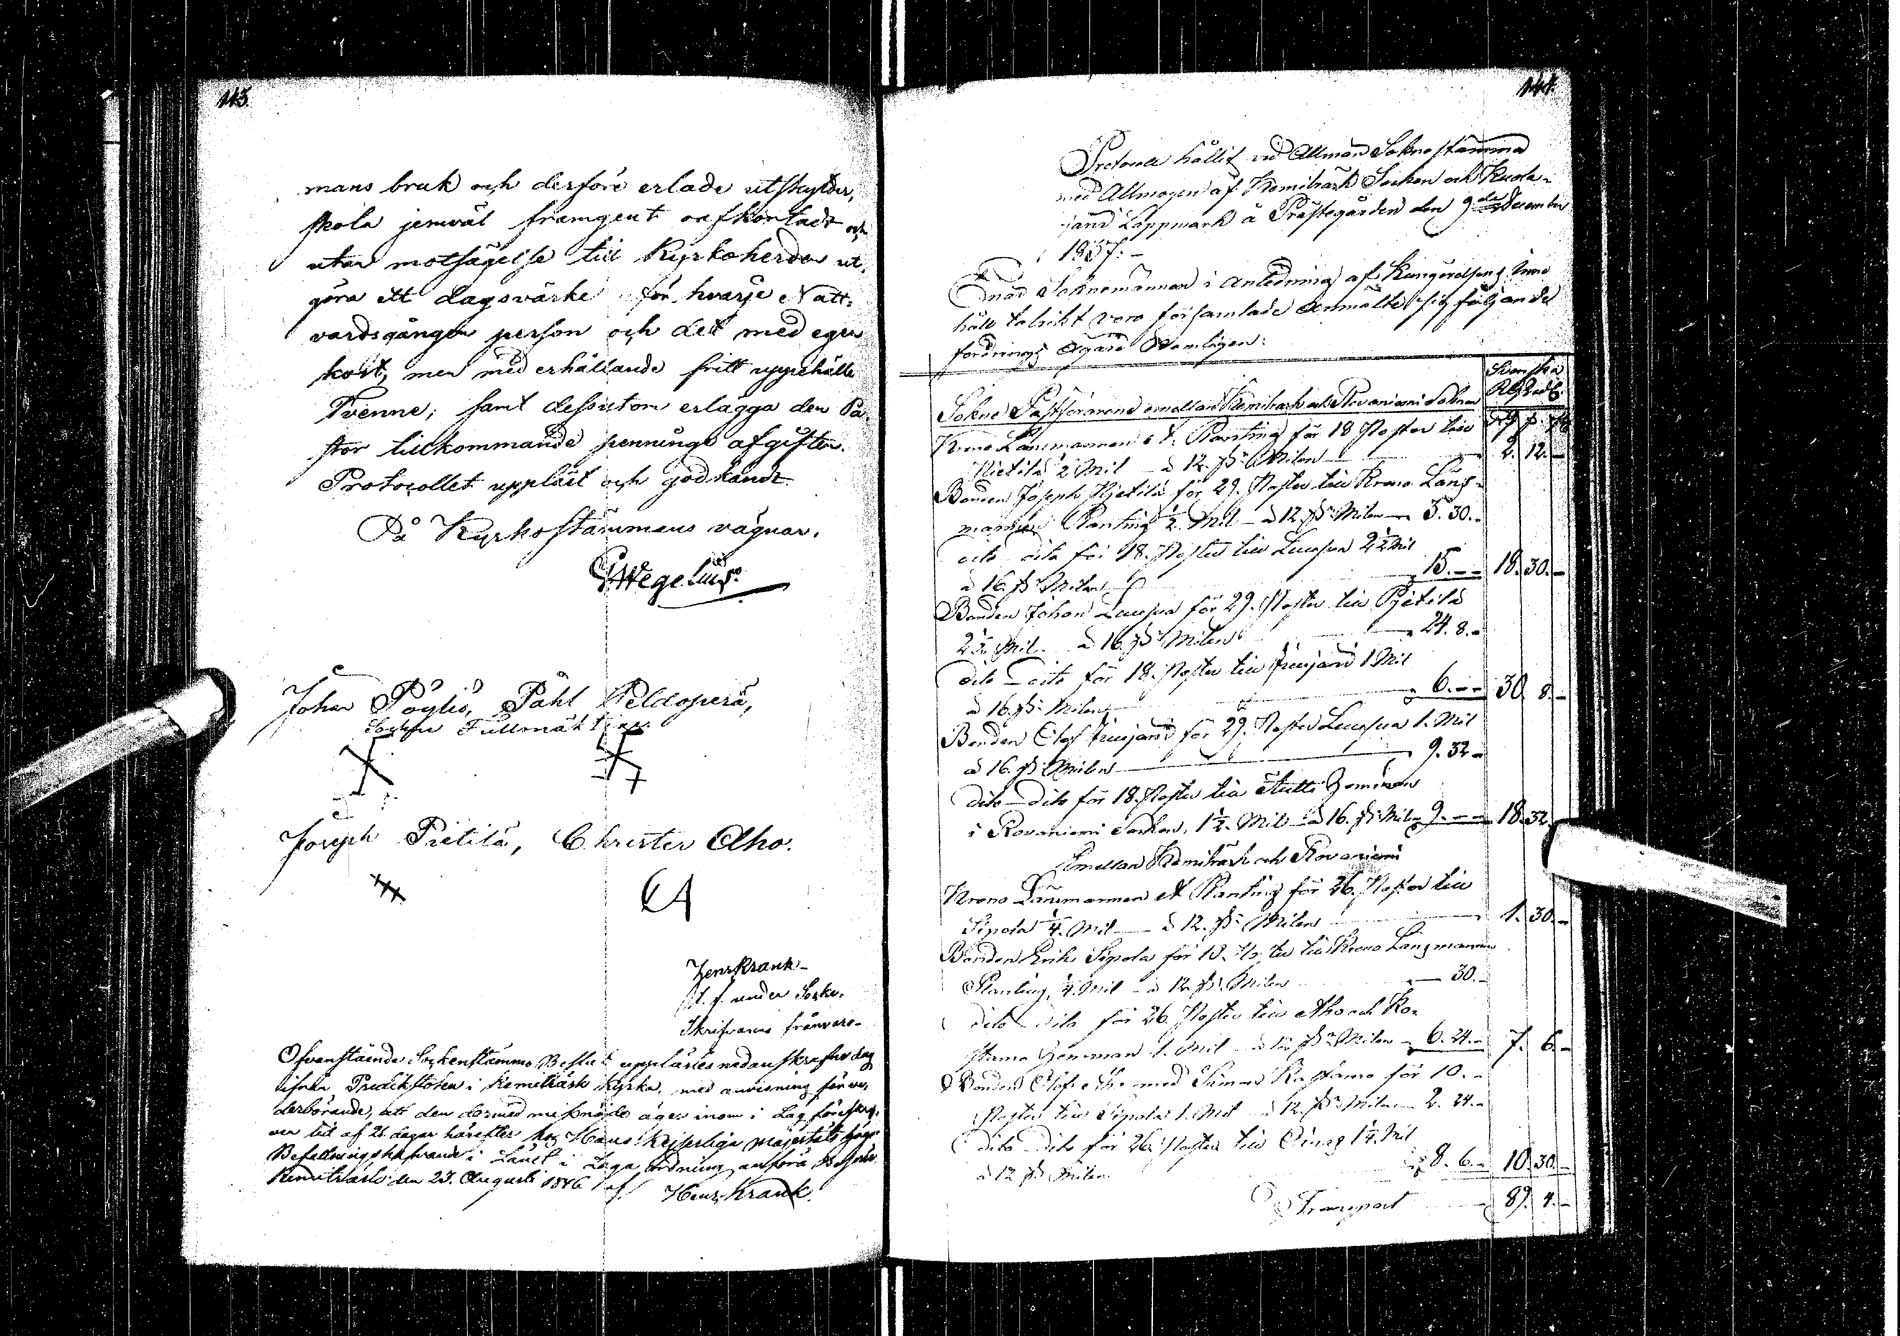 113.
mans bruk och derföre erlade utskylder,
skola jemväl framgent oafkortadt och
utan motsägelse till Kyrkoherden ut-
göra ett dagsvärke för hvarje Natt-
vardsgången person och det med egen
kost, men med erhållande fritt uppehälle
Tvenne, samt dessutom erlägga den Pa-
stor tillkommande pennings afgiften.
Protocollet uppläst och godkändt.
På Kyrkostämmans vägnar.
Wegelius.
Johan Pöyliö, Påhl Peldoperä,
Socken Fullmäktige
Joseph Pietilä, Christer Aho.
CA
Henr Krank
st. f. under Socken
Skrifvarens frånvaro
Ofvanstående Sockenstämmo Beslut upplästes nedanskrefne dag
ifrån Predikstolen i Kemiträsk Kyrka, med anvisning för ve-
derbörande, att den dermed missnöjde äger inom i Lag föreskrif-
ven tid af 21 dagar härefter hos Hans Kejserliga Majestäts
Befallningshafvande i Länet i Laga ordning anföra Besvär.
Kemiträsk den 23. Augusti 1846 af Henr Krank.
144.
Protocoll hållit vid Allmän Soknestämma
med Allmogen af Kemiträsk Socken och Kuola-
järvi Lappmark å Prästegården den 9de December
1837.
Soknemännen i anledning af Kungörelse
talrikt voro församlade anmälte sig följande
fordrings ägare Nemligen:
Sokne Postförande emellan Kemiträsk och Rovaniemi Soknar
Svenska
Krono Länsmannen A. Planting för 18 Poster till
Pietilä 1/2 Mil à 12. sk. Milen 2. 12.
Bonden Joseph Pietilä för 29. Poster till Krono Läns-
mannen Planting 1/2 Mil à 12 sk. Milen 3. 30.
dito dito för 18. Poster till Luusua 2 1/2 Mil
à 16. sk. Milen 15. 18. 30.
Bonden Johan Luusua för 29. Poster till Pietilä
2 1/2 Mil à 16. sk. Milen 24. 8.
dito dito för 18. Poster till 1 Mil
à 16. sk. Milen 6. 30. 8.
Bonden Olof för 29. Poster Luusua 1. Mil
à 16. sk. Milen 9. 32
dito dito för 18. Poster till Hemman
i Rovaniemi Socken, 1 1/2 Mil à 16. sk. Mil 9. 18. 32.
Emellan Kemiträsk och Rovaniemi
Krono Länsmannen A Planting för 26. Poster till
Sipola 1/4 Mil à 12. sk. Milen 1. 30.
Bonden Erik Sipola för 10. Poster till Krono Länsmannen
Planting, 1/4 Mil à 12. sk. Milen 30.
dito dito för 26. Poster till Aho och Ko-
stamo Hemman 1. Mil à 12 sk. Milen 6. 24. 7. 6.
Bonden Olof Aho med Kostamo för 10.
Poster till Sipola 1. Mil à 12. sk. Milen 2. 24.
dito dito för 26. Poster till 1 1/4 Mil
à 12 sk. Milen 8. 6. 10. 30.
Transport 89. 4.